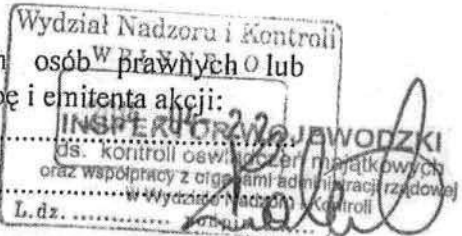 Wydział Nadzoru i Kontroli
WPŁYNĘŁO
osób prawnych lub
i emitenta akcji:
INSPEKTOR WOJEWODZKI
ds. kontroli oświadczeń majątkowych
oraz współpracy z organami administracji rządowej
w Wydziale Nadzoru i Kontroli
L.dz. ..............